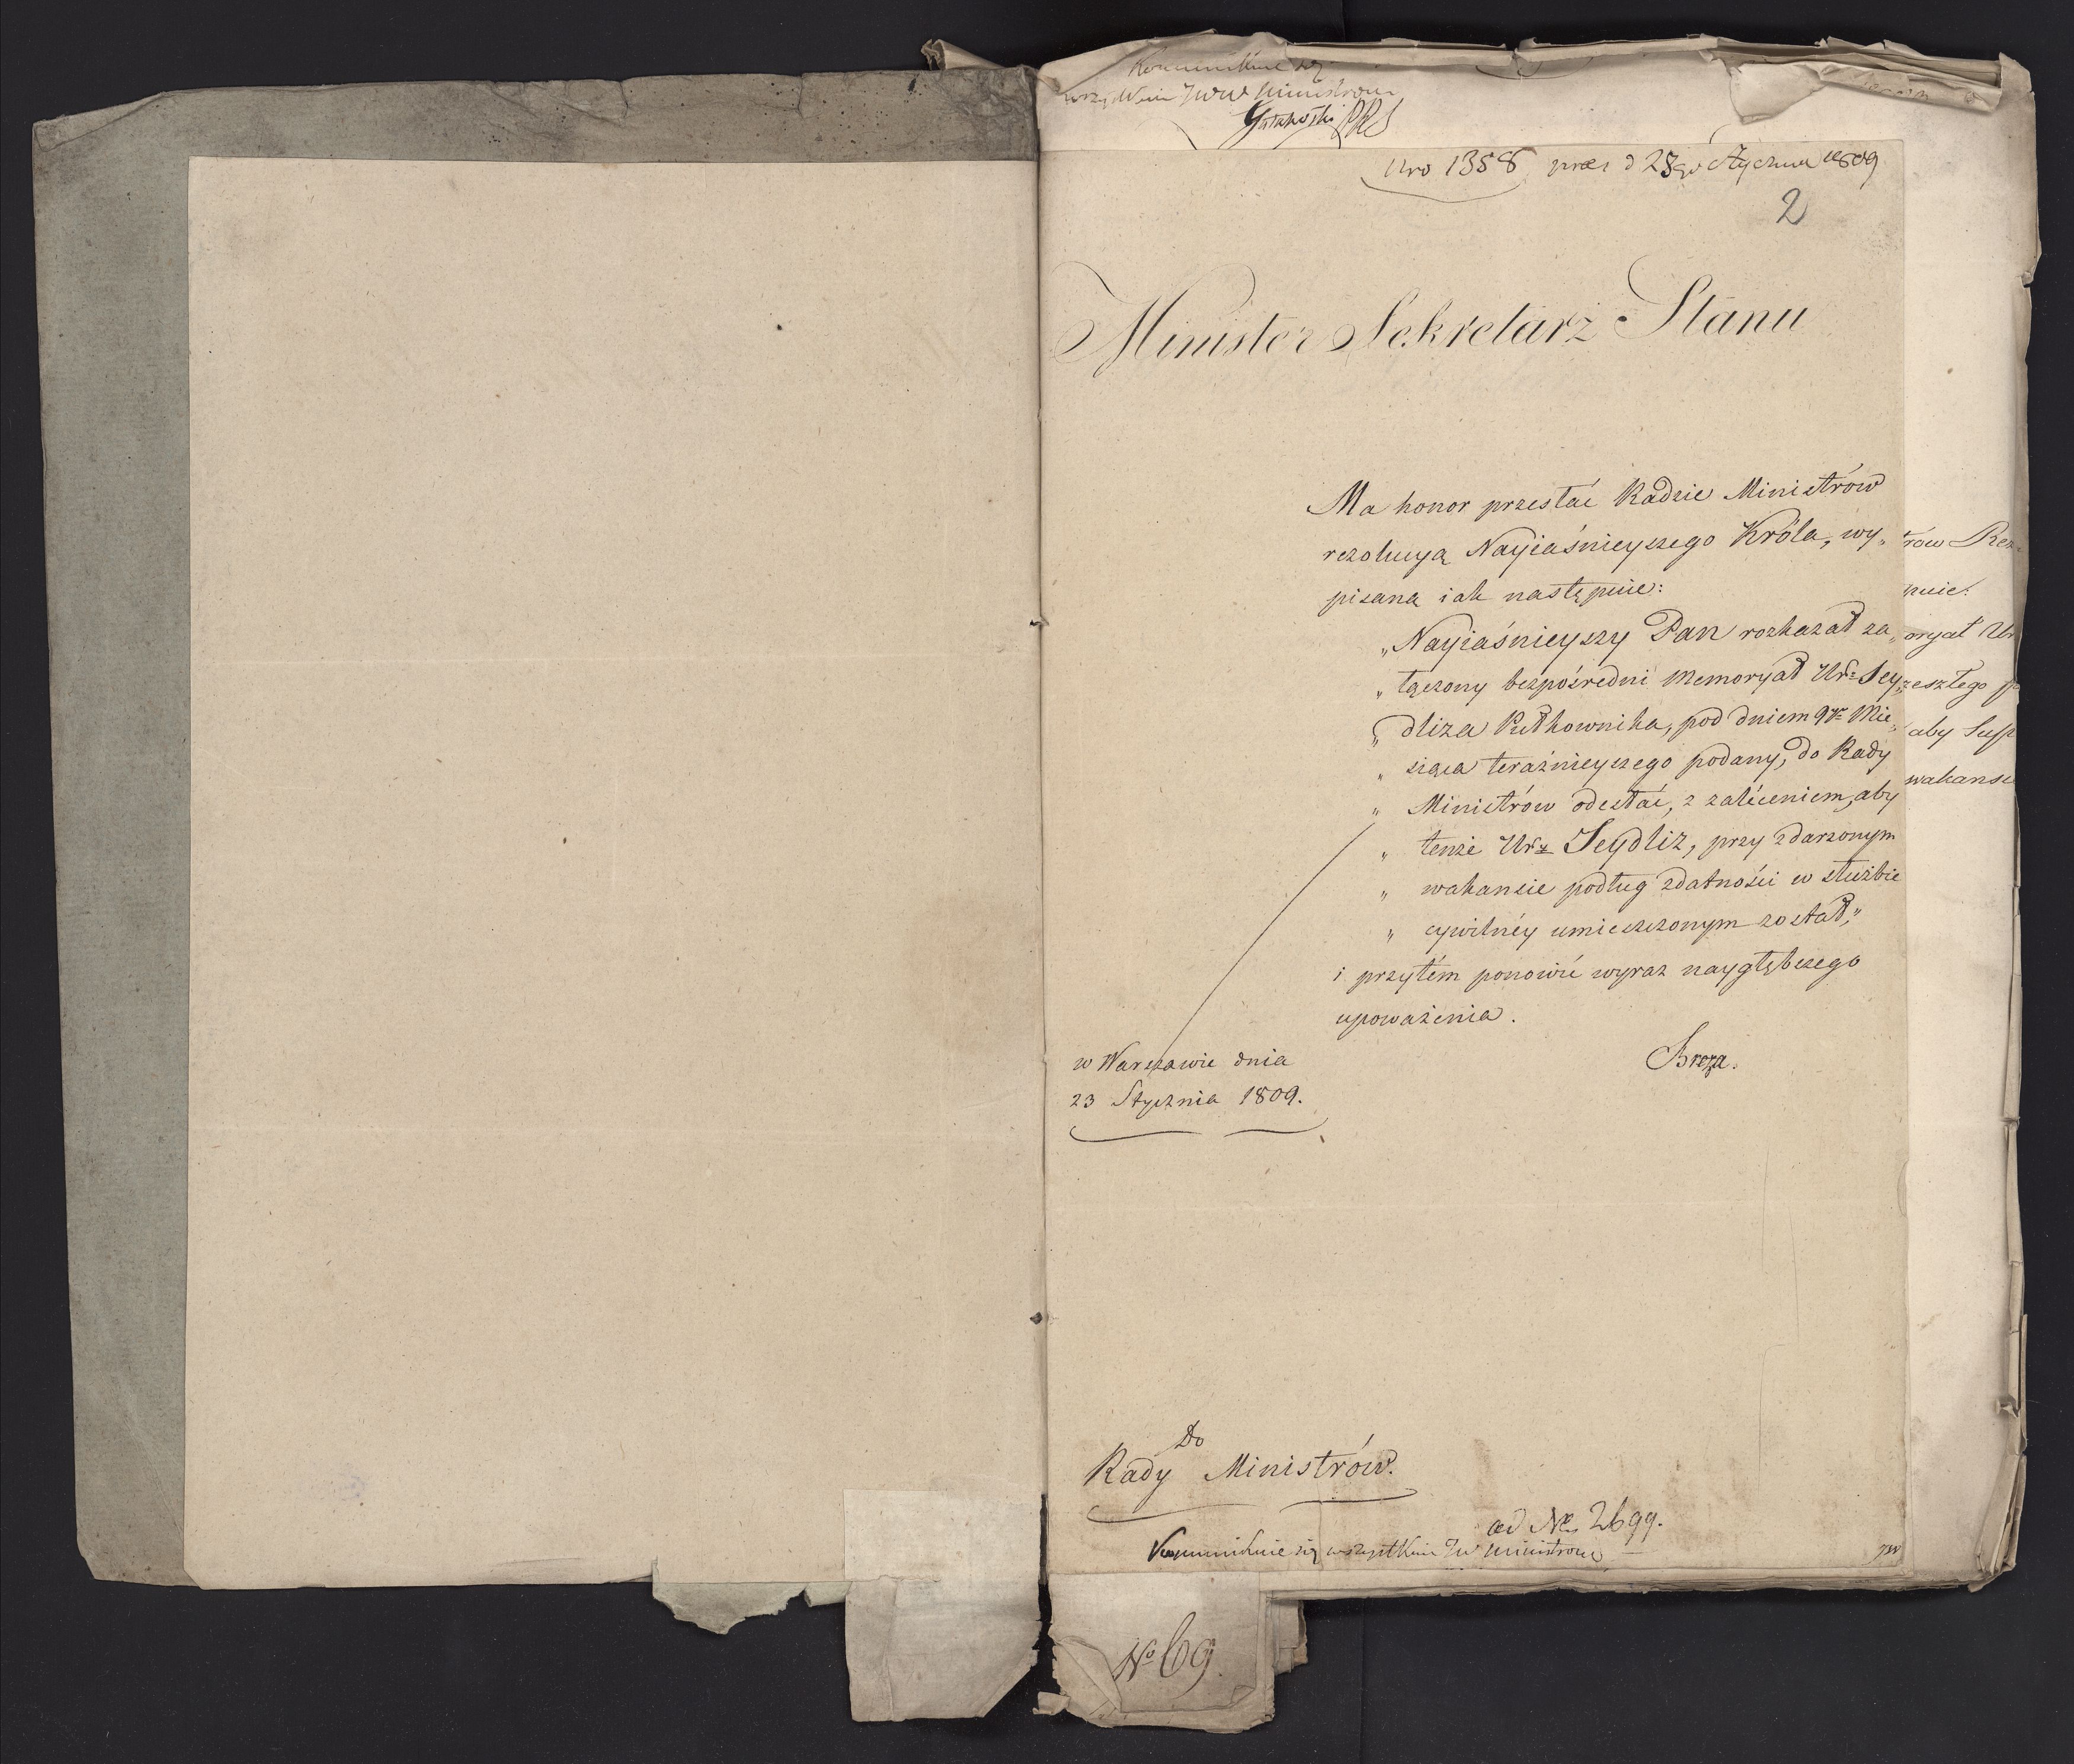 Kommunikuie się
wszystkim JWW Ministrom
Gutakowski PRS
Nro 1358 praes d 25go Stycznia 1809
2
Minister Sekretarz Stanu
Ma honor przesłać Radzie Ministrów
rezolucyą Nayiaśnieyszego Króla, wy„
pisaną iak następuie:
„Nayiaśnieyszy Pan rozkazał za„
„łączony bezpośredni Memoryał Ur: Sey„
„dliza Pułkownika, pod dniem 9go Mie„
„siąca teraźnieyszego podany, do Rady
„Ministrów odesłać, z zaleceniem, aby
„tenże Ur: Seydliz, przy zdarzonym
„wakansie podług zdatności w służbie
„cywilnéy umieszczonym został,"
i przytém ponowić wyraz naygłębszego
upoważenia.
Breza.
w Warszawie dnia
23 Stycznia 1809.
Do
Rady Ministrów.
ad Nr 2699.
Kommunikuie się wszystkim JW Ministrom
No 69.
trów Rez
puie:
oryał Ur
zeszłego p
aby Sup
wakanse